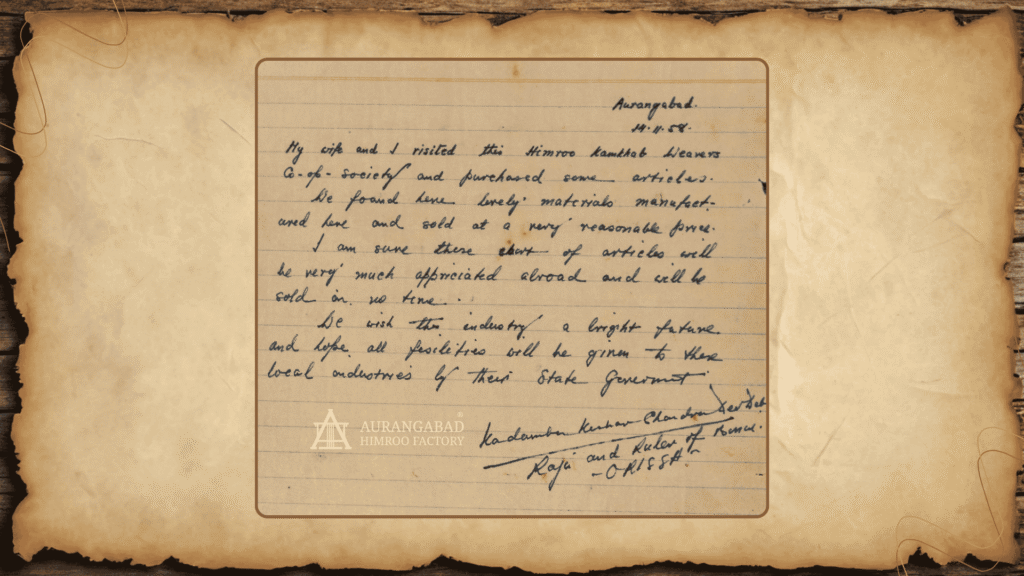 Aurangabad.
14.11.58.
My wife and I visited this Himroo Kamkhab Weavers
Co-op-society and purchased some articles.
We found here lovely materials manufact-
ured here and sold at a very reasonable price.
I am sure these of articles will
be very much appriciated abroad and will be
sold in no time.
We wish this industry a bright future
and hope all fecilities will be given to these
local industries by their State Goverment
AURANGABAD
HIMROO FACTORY
Chandra
Raja and Ruler of
-ORISSA-